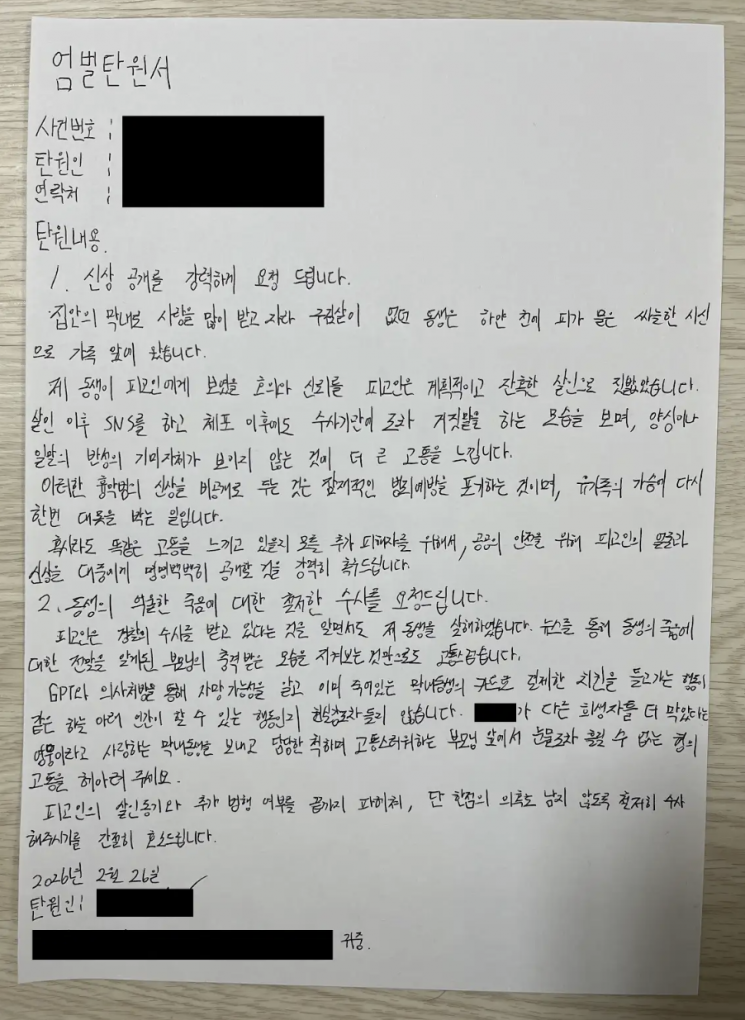 엄벌탄원서
사건번호 :
탄원인 :
연락처 :
탄원내용.
1. 신상 공개를 강력하게 요청 드립니다.
집안의 막내로 사랑을 많이 받고 자라 구김살이 없던 동생은 하얀 천에 피가 물은 싸늘한 시신
으로 가족 앞에 왔습니다.
제 동생이 피고인에게 보였을 호의와 신뢰를 피고인은 계획적이고 잔혹한 살인으로 짓밟았습니다.
살인 이후 SNS를 하고 체포 이후에도 수사기관에 조차 거짓말을 하는 모습을 보며, 양심이나
일말의 반성의 기미자체가 보이지 않는 것이 더 큰 고통을 느낍니다.
이러한 흉악범의 신상을 비공개로 두는 것은 잠재적인 범죄예방을 포기하는 것이며, 유가족의 가슴에 다시
한번 대못을 박는 일입니다.
혹시라도 똑같은 고통을 느끼고 있을지 모를 추가 피해자를 위해서, 공공의 안전을 위해 피고인의 얼굴과
신상을 대중에게 명명백백히 공개할 것을 강력히 촉구드립니다.
2. 동생의 억울한 죽음에 대한 철저한 수사를 요청드립니다.
피고인은 경찰의 수사를 받고 있다는 것을 알면서도 제 동생을 살해하였습니다. 뉴스를 통해 동생의 죽음에
대한 전말을 알게된 부모님의 충격받은 모습을 지켜보는것만으로도 고통스럽습니다.
GPT와 의사처방을 통해 사망가능성을 알고 이미 죽어있는 막내동생의 카드로 결제한 치킨을 들고가는 행동이
같은 하늘 아래 인간이 할 수 있는 행동인지 현실감조차 들지 않습니다. 가 다른 희생자를 더 막았다는
영웅이라고 사랑하는 막내동생을 보내고 담담한 척하며 고통스러워하는 부모님 앞에서 눈물조차 흘릴 수 없는 형의
고통을 헤아려 주세요.
피고인의 살인동기와 추가 범행 여부를 끝까지 파헤쳐, 단 한점의 의혹도 남지 않도록 철저히 수사
해주시기를 간절히 호소드립니다.
2026년 2월 26일
탄원인:
귀중.